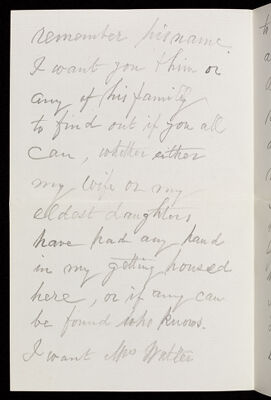 remember his name.
I want you & him or
any of his family
to find out if you all
can, whether either
my wife or my
eldest daughters
have had any hand
in my getting housed
here, or if any can
be found who knows.
I want Mrs Walter